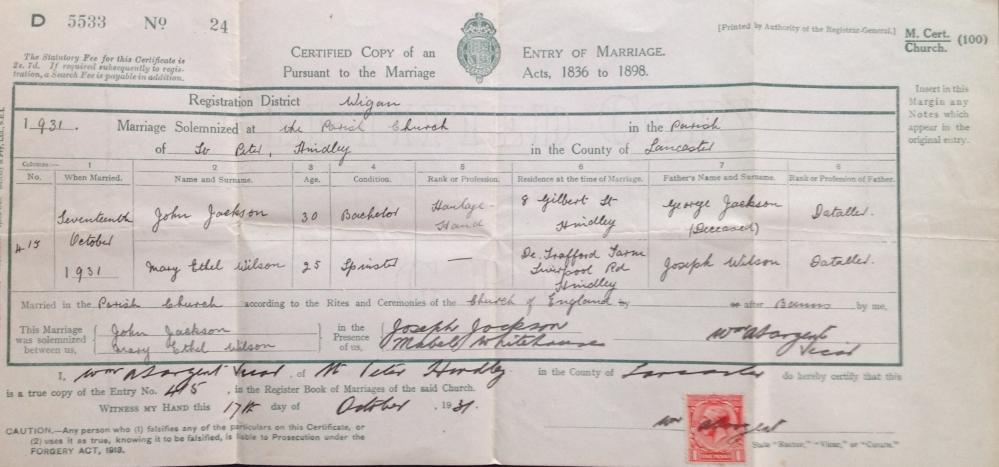 D 5533 Nº 24
[Printed by Authority of the Registrar-General.]
M. Cert.
Church. (100)
The Statutory Fee for this Certificate is
2s. 7d. If required subsequently to regis-
tration, a Search Fee is payable in addition.
CERTIFIED COPY OF AN ENTRY OF MARRIAGE.
Pursuant to the Marriage Acts, 1836 to 1898.
Insert in this
Margin any
Notes which
appear in the
original entry.
Registration District Wigan
1931. Marriage Solemnized at the Parish Church in the Parish
of St Peter, Hindley in the County of Lancaster
Columns:— 1 2 3 4 5 6 7 8
No. When Married. Name and Surname. Age. Condition. Rank or Profession. Residence at the time of Marriage. Father's Name and Surname. Rank or Profession of Father.
415 Seventeenth October 1931
John Jackson 30 Bachelor Haulage-Hand 8 Gilbert St Hindley George Jackson (Deceased) Dataller.
Mary Ethel Wilson 25 Spinster — De. Trafford Farm Liverpool Rd Hindley Joseph Wilson Dataller.
Married in the Parish Church according to the Rites and Ceremonies of the Church of England by or after Banns by me,
This Marriage was solemnized between us, John Jackson Mary Ethel Wilson in the Presence of us, Joseph Jackson Mabel Whitehouse Wm A Sargent Vicar
I, Wm A Sargent Vicar, of St Peter Hindley in the County of Lancaster do hereby certify that this
is a true copy of the Entry No. 415, in the Register Book of Marriages of the said Church.
WITNESS MY HAND this 17th day of October, 1931.
Wm A Sargent
CAUTION.—Any person who (1) falsifies any of the particulars on this Certificate, or
(2) uses it as true, knowing it to be falsified, is liable to Prosecution under the
FORGERY ACT, 1913.
State "Rector," "Vicar," or "Curate."
1 ONE PENNY 1